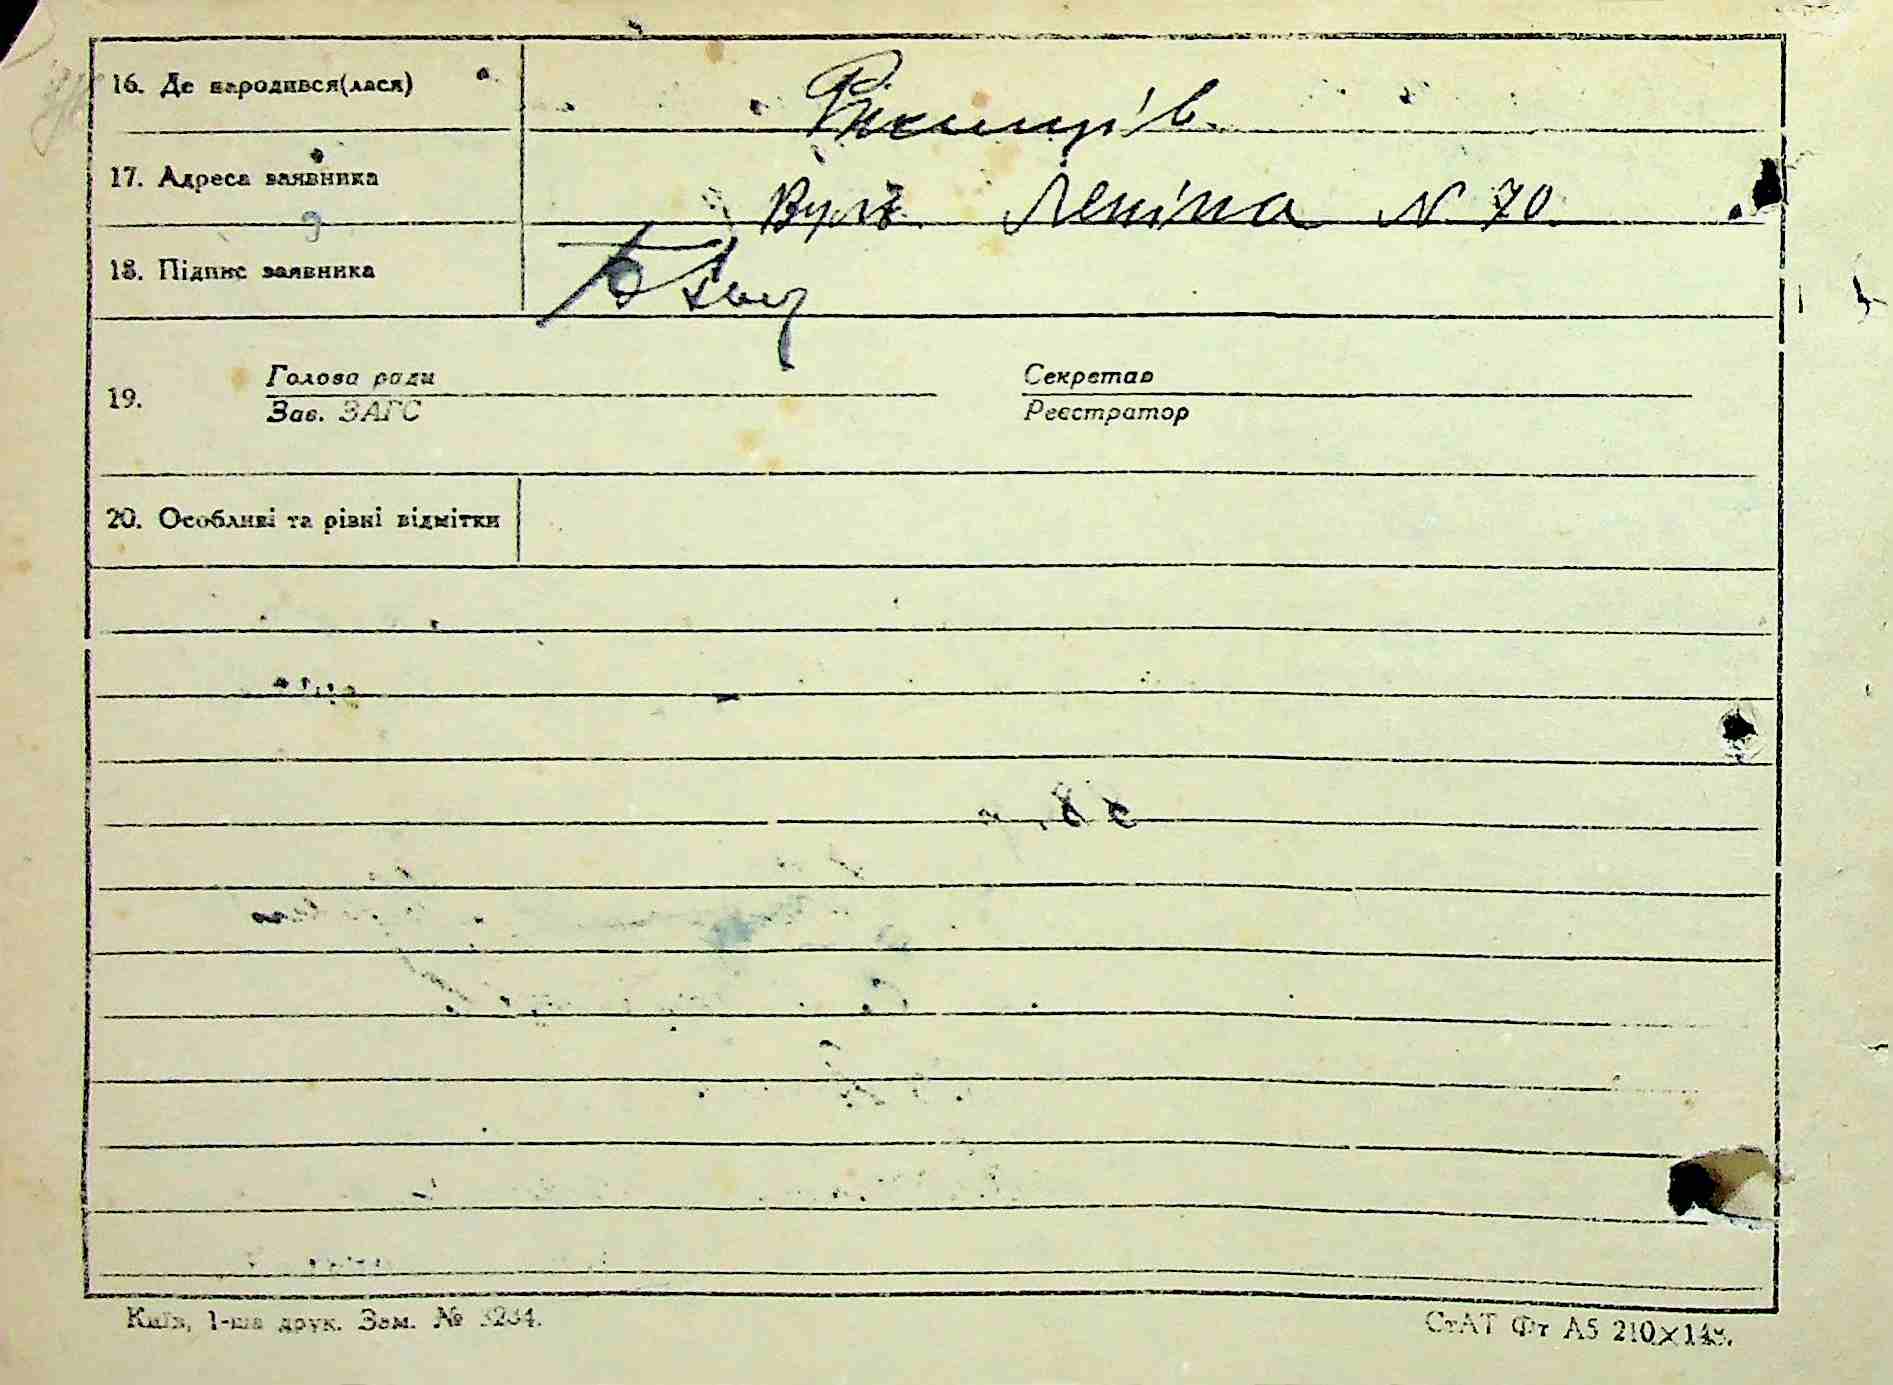 16. Де народився(лася)
Ржищів
17. Адреса заявника
Вул. Леніна N 70
18. Підпис заявника
19. Голова ради
Зав. ЗАГС
Секретар
Реєстратор
20. Особливі та різні відмітки
Київ, 1-ша друк. Зам. № 3234.
СтАТ Фт А5 210×148.